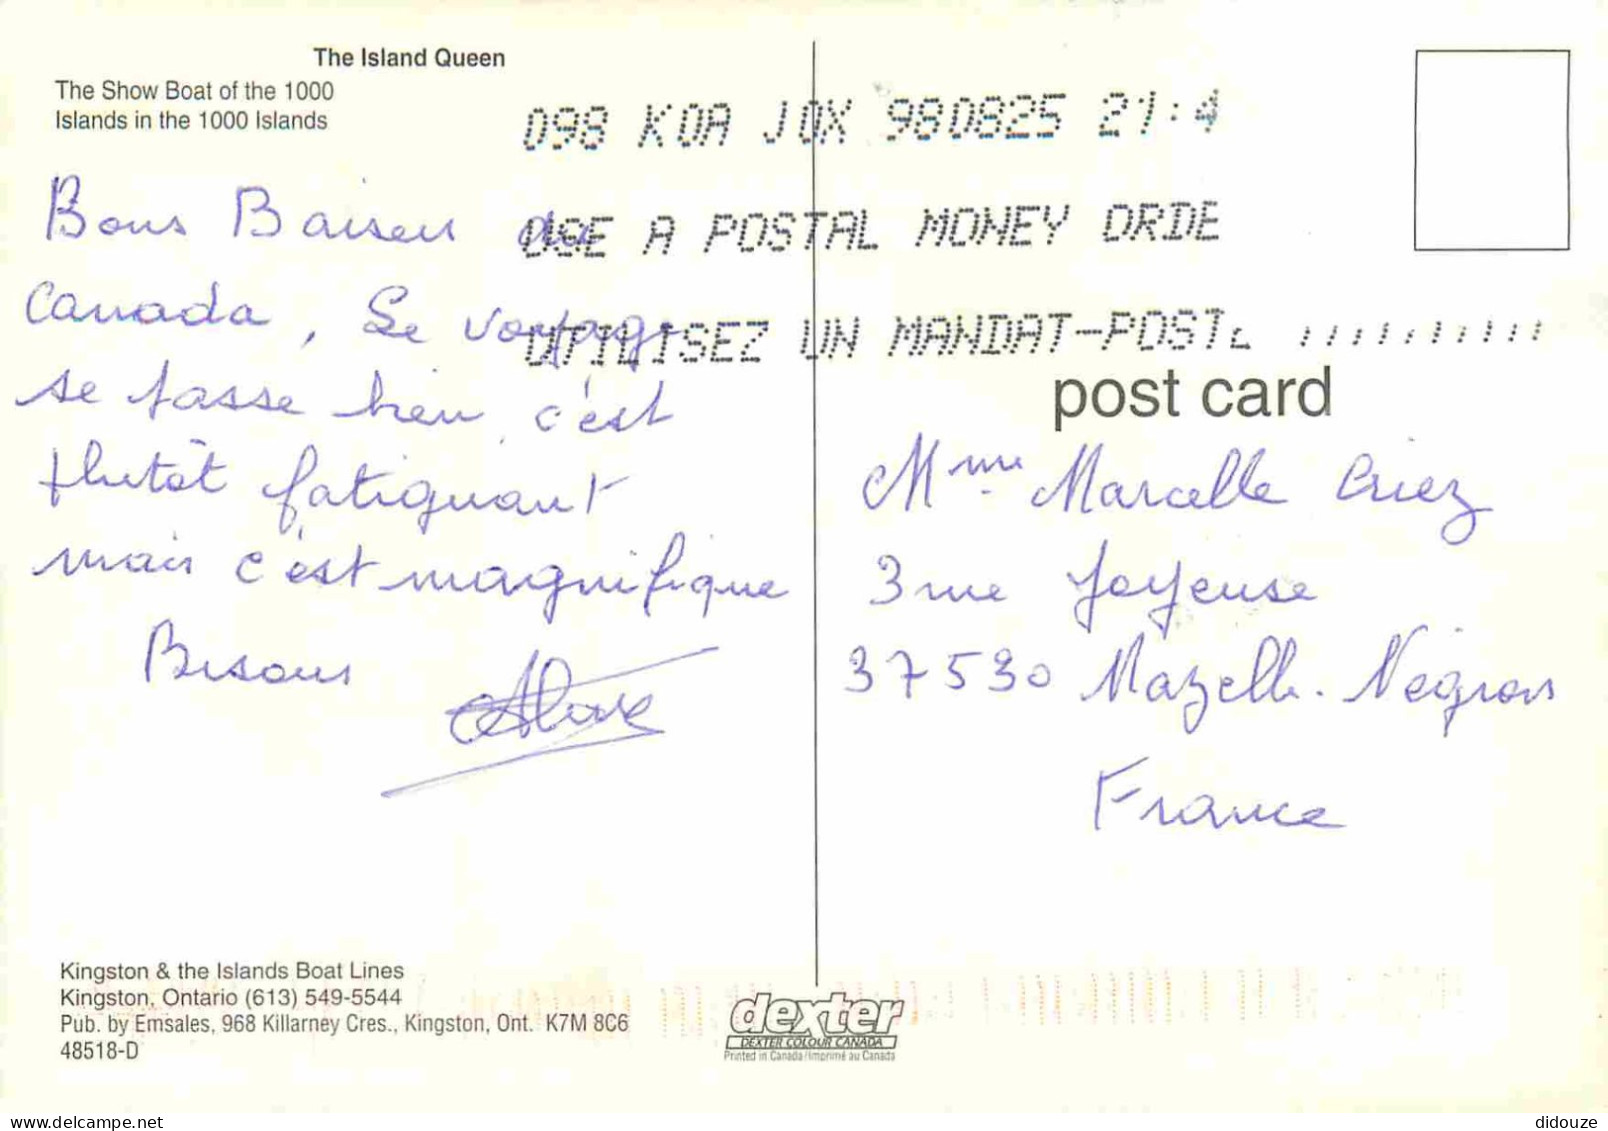 The Island Queen
The Show Boat of the 1000
Islands in the 1000 Islands
098 K0A J0X 980825 21:4
USE A POSTAL MONEY ORDE
UTILISEZ UN MANDAT-POST
Bons Baisers du
Canada, Le voyage
se passe bien, c'est
plutôt fatiguant
mais c'est magnifique
Bisous
post card
Mme Marcelle
3 rue Joyeuse
37530 Nazelle. Négron
France
Kingston & the Islands Boat Lines
Kingston, Ontario (613) 549-5544
Pub. by Emsales, 968 Killarney Cres., Kingston, Ont. K7M 8C6
48518-D
dexter
DEXTER COLOUR CANADA
Printed in Canada/Imprimé au Canada
didouze